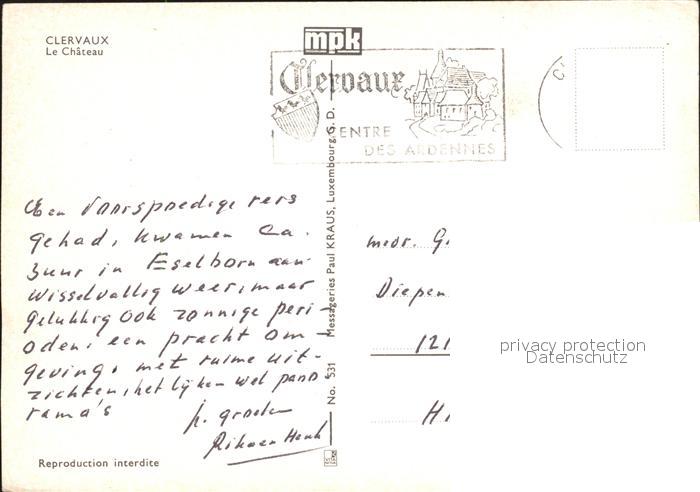 CLERVAUX
Le Château
mpk
Clervaux
CENTRE
DES ARDENNES
C
Een Voorspoedige reis
gehad, kwamen ca.
3 uur in Eselborn aan
wisselvallig weer, maar
gelukkig ook zonnige peri-
oden, een pracht om-
geving, met ruime uit-
zichten, het lijken wel pano-
rama's
h. groeten
Rik en Henk
Reproduction interdite
No. 531 Messageries Paul KRAUS, Luxembourg G. D.
medr. G.
Diepen
121
H
privacy protection
Datenschutz